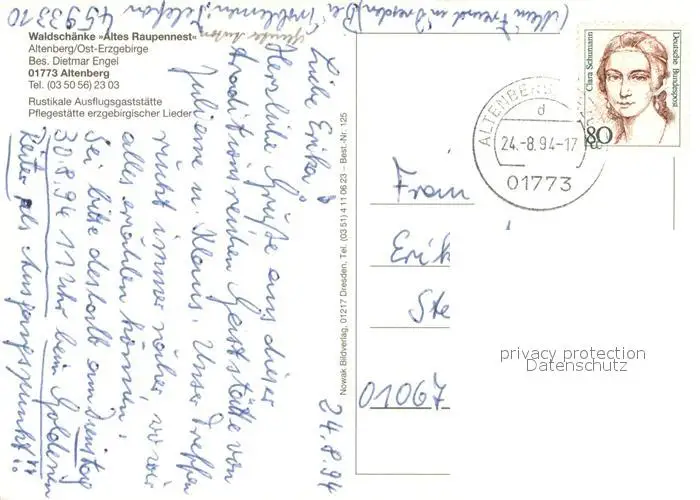 (Mein Freund in Dresden) Bei Problemen: Telefon 4593310
Waldschänke »Altes Raupennest«
Altenberg/Ost-Erzgebirge
Bes. Dietmar Engel
01773 Altenberg
Tel. (03 50 56) 23 03
Rustikale Ausflugsgaststätte
Pflegestätte erzgebirgischer Lieder
24.8.94
Liebe Erika!
Herzliche Grüße aus dieser
traditionsreichen Gaststätte von
Julienne u. Klaus. Unser Treffen
rückt immer näher, wo wir
alles erzählen können.
Sei bitte deshalb am Dienstag
30.8.94 11 Uhr beim Goldenen
Reiter als Ausgangspunkt!!
Nowak Bildverlag, 01217 Dresden, Tel. (03 51) 4 11 06 23 – Best.-Nr. 125
ALTENBERG
d
24.-8.94-17
01773
Clara Schumann
Deutsche Bundespost
80
Frau
Erik
Ste
01067
privacy protection
Datenschutz